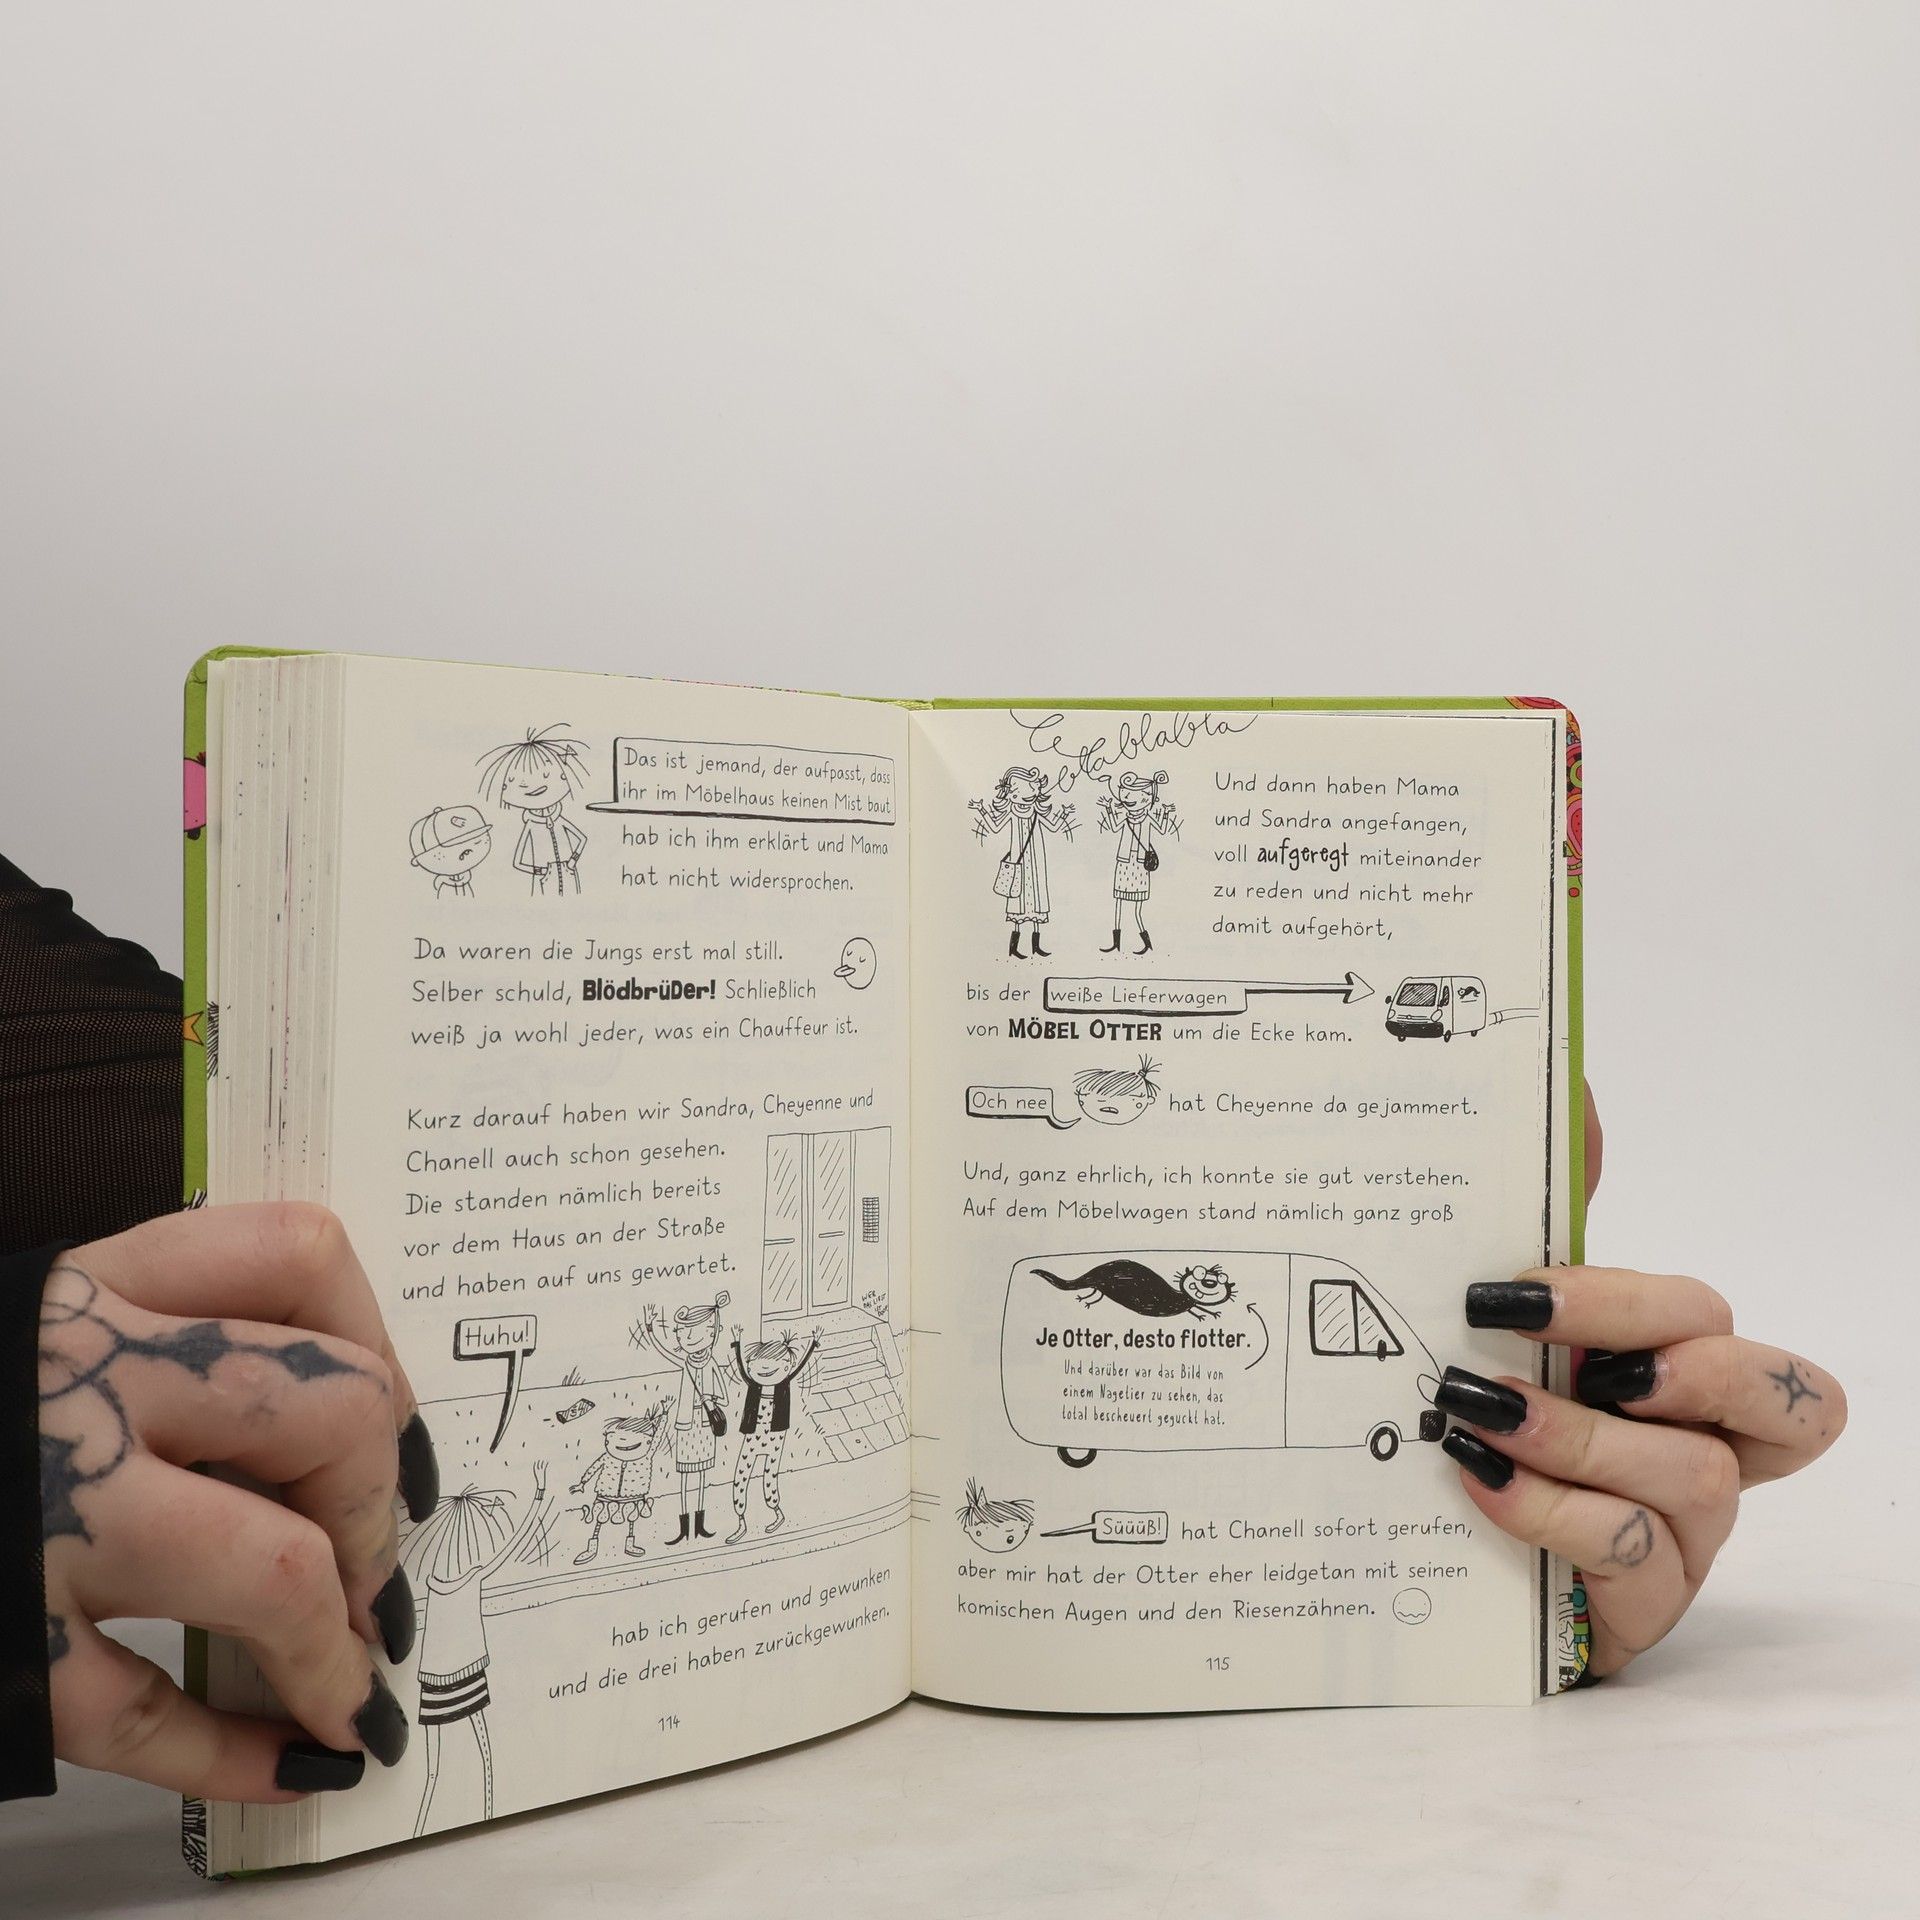 Das ist jemand, der aufpasst, dass
ihr im Möbelhaus keinen Mist baut
hab ich ihm erklärt und Mama
hat nicht widersprochen.
Da waren die Jungs erst mal still.
Selber schuld, BlödbrüDer! Schließlich
weiß ja wohl jeder, was ein Chauffeur ist.
Kurz darauf haben wir Sandra, Cheyenne und
Chanell auch schon gesehen.
Die standen nämlich bereits
vor dem Haus an der Straße
und haben auf uns gewartet.
Huhu!
hab ich gerufen und gewunken
und die drei haben zurückgewunken.
114
blablablabla
Und dann haben Mama
und Sandra angefangen,
voll aufgeregt miteinander
zu reden und nicht mehr
damit aufgehört,
bis der weiße Lieferwagen
von MÖBEL OTTER um die Ecke kam.
Och nee hat Cheyenne da gejammert.
Und, ganz ehrlich, ich konnte sie gut verstehen.
Auf dem Möbelwagen stand nämlich ganz groß
Je Otter, desto flotter.
Und darüber war das Bild von
einem Nagetier zu sehen, das
total bescheuert geguckt hat.
Süüüß! hat Chanell sofort gerufen,
aber mir hat der Otter eher leidgetan mit seinen
komischen Augen und den Riesenzähnen.
115